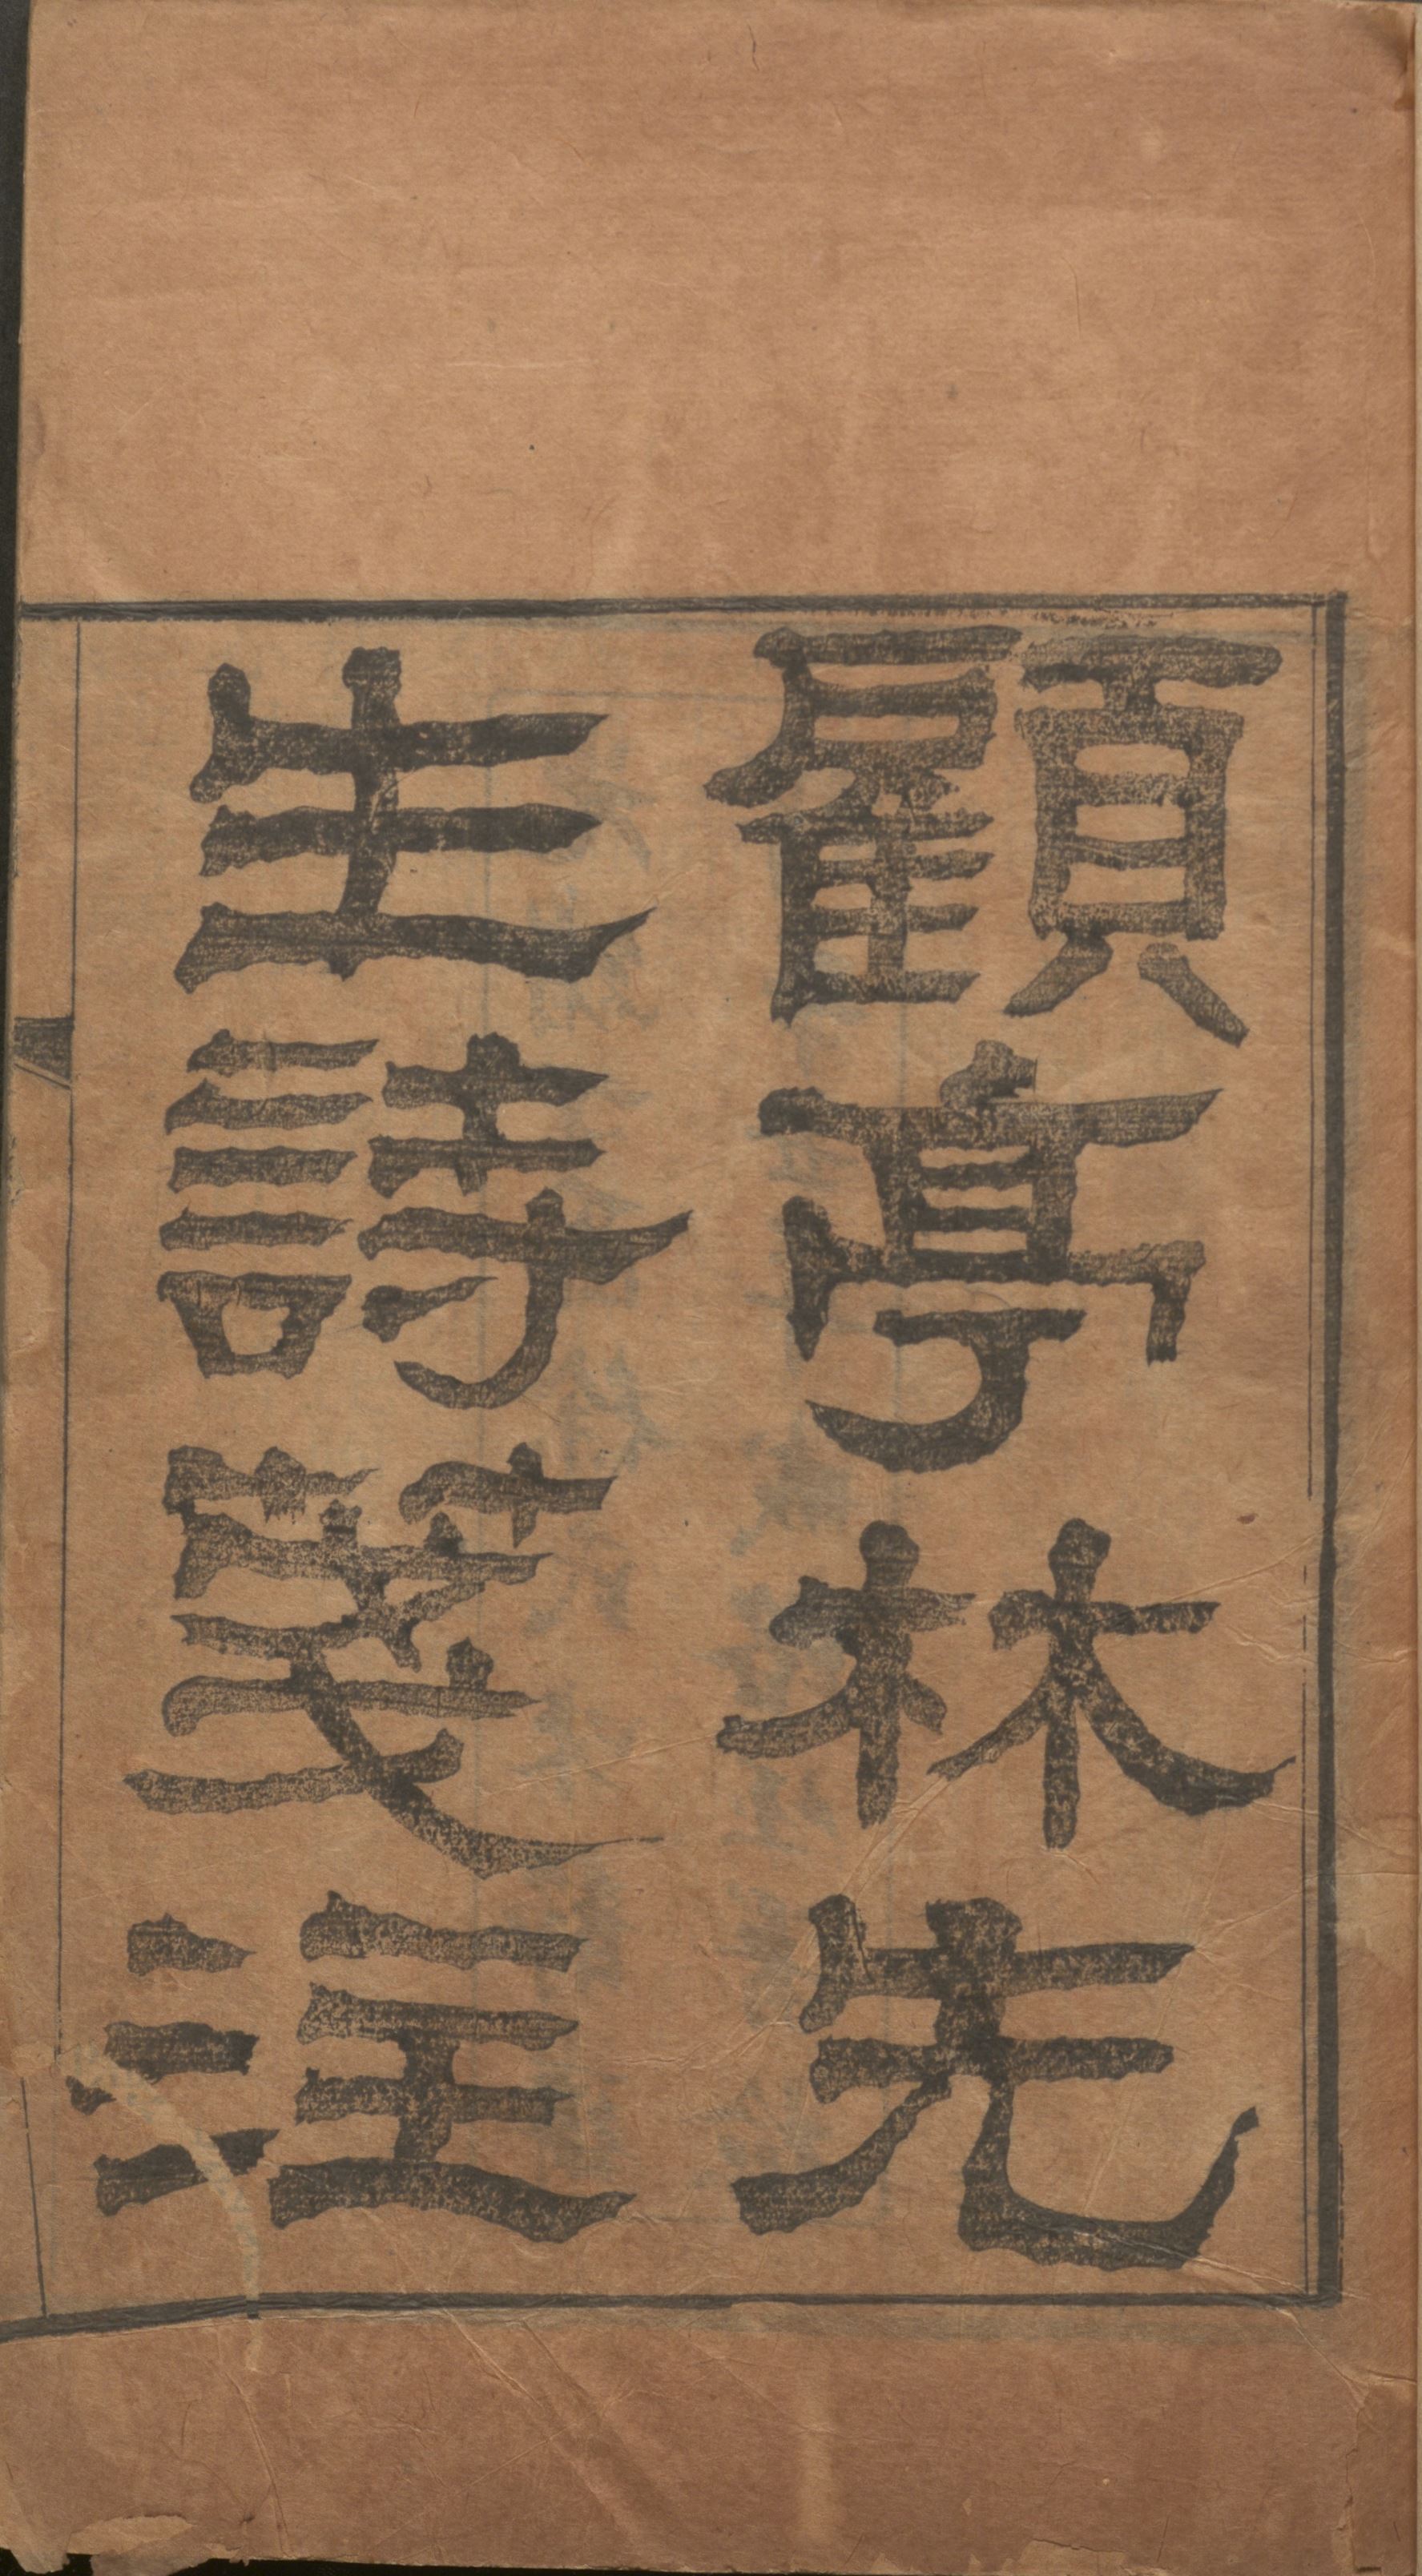 顧亭林先
生詩箋注